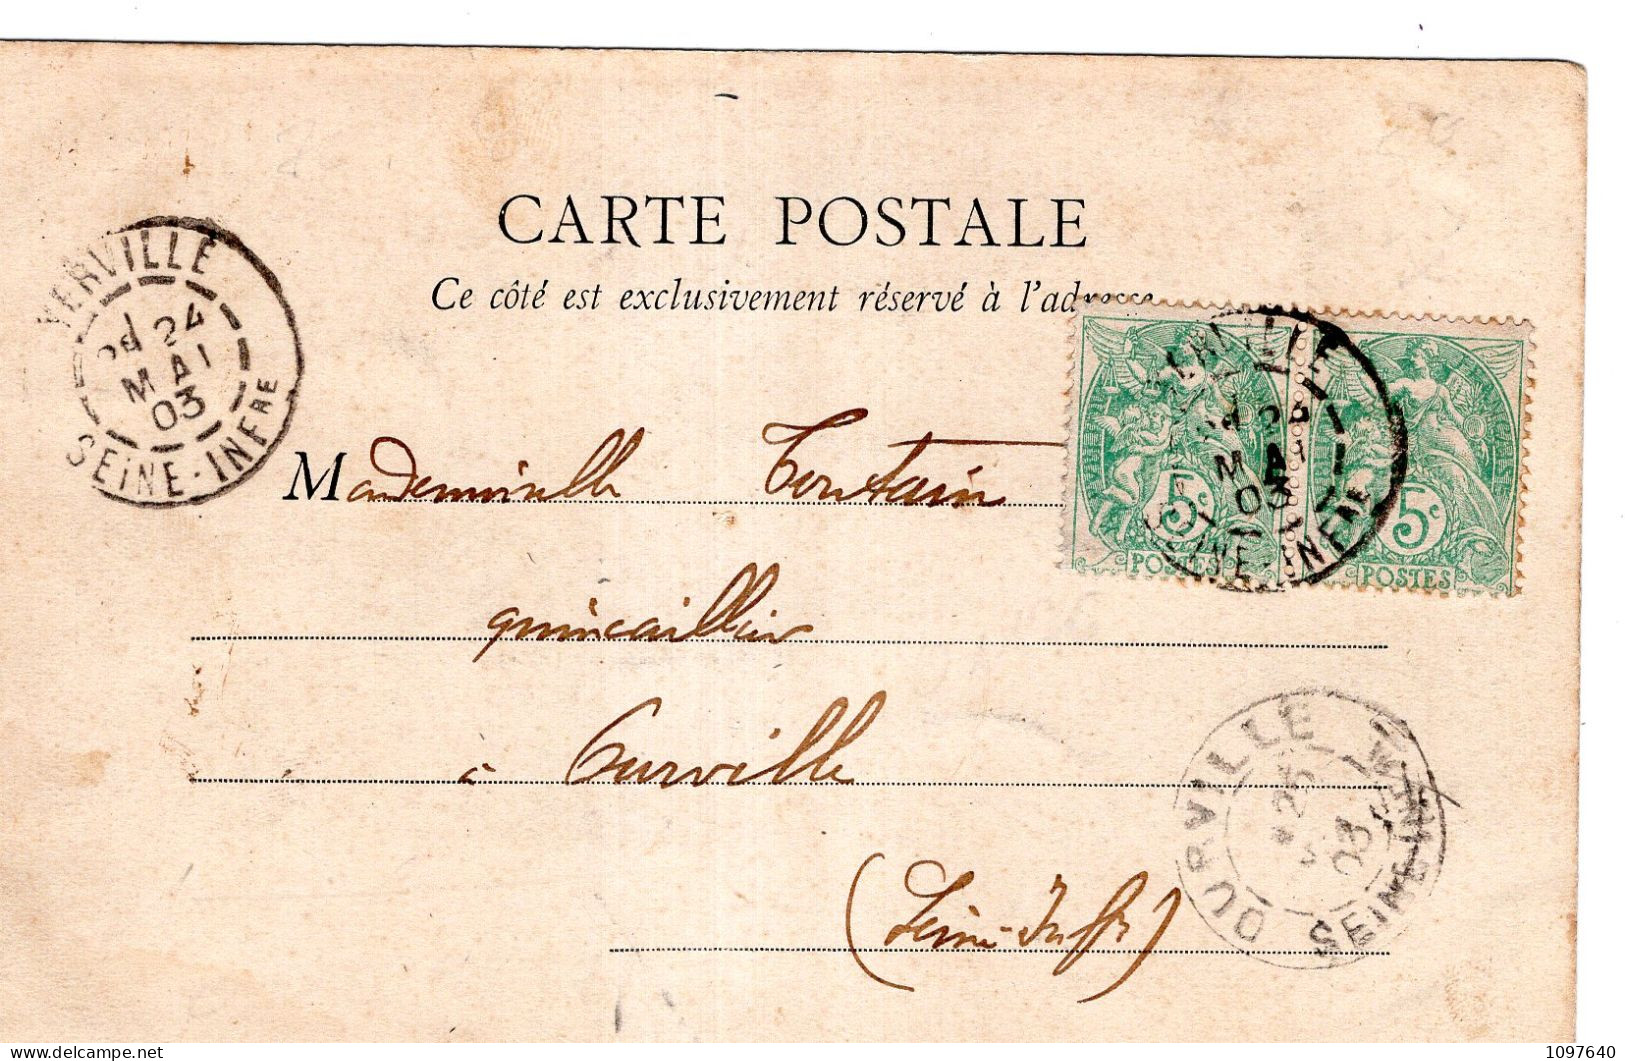 CARTE POSTALE
Ce côté est exclusivement réservé à l'adresse
YERVILLE
24
MAI
03
SEINE-INFRE
Mademoiselle Toutain
5c 5c
POSTES POSTES
MAI
03
INFRE
quincaillier
à Ourville
(Seine-Infre)
OURVILLE
25
03
SEINE-INFRE
delcampe.net
1097640